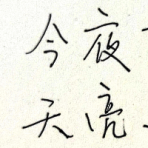 今夜
天亮